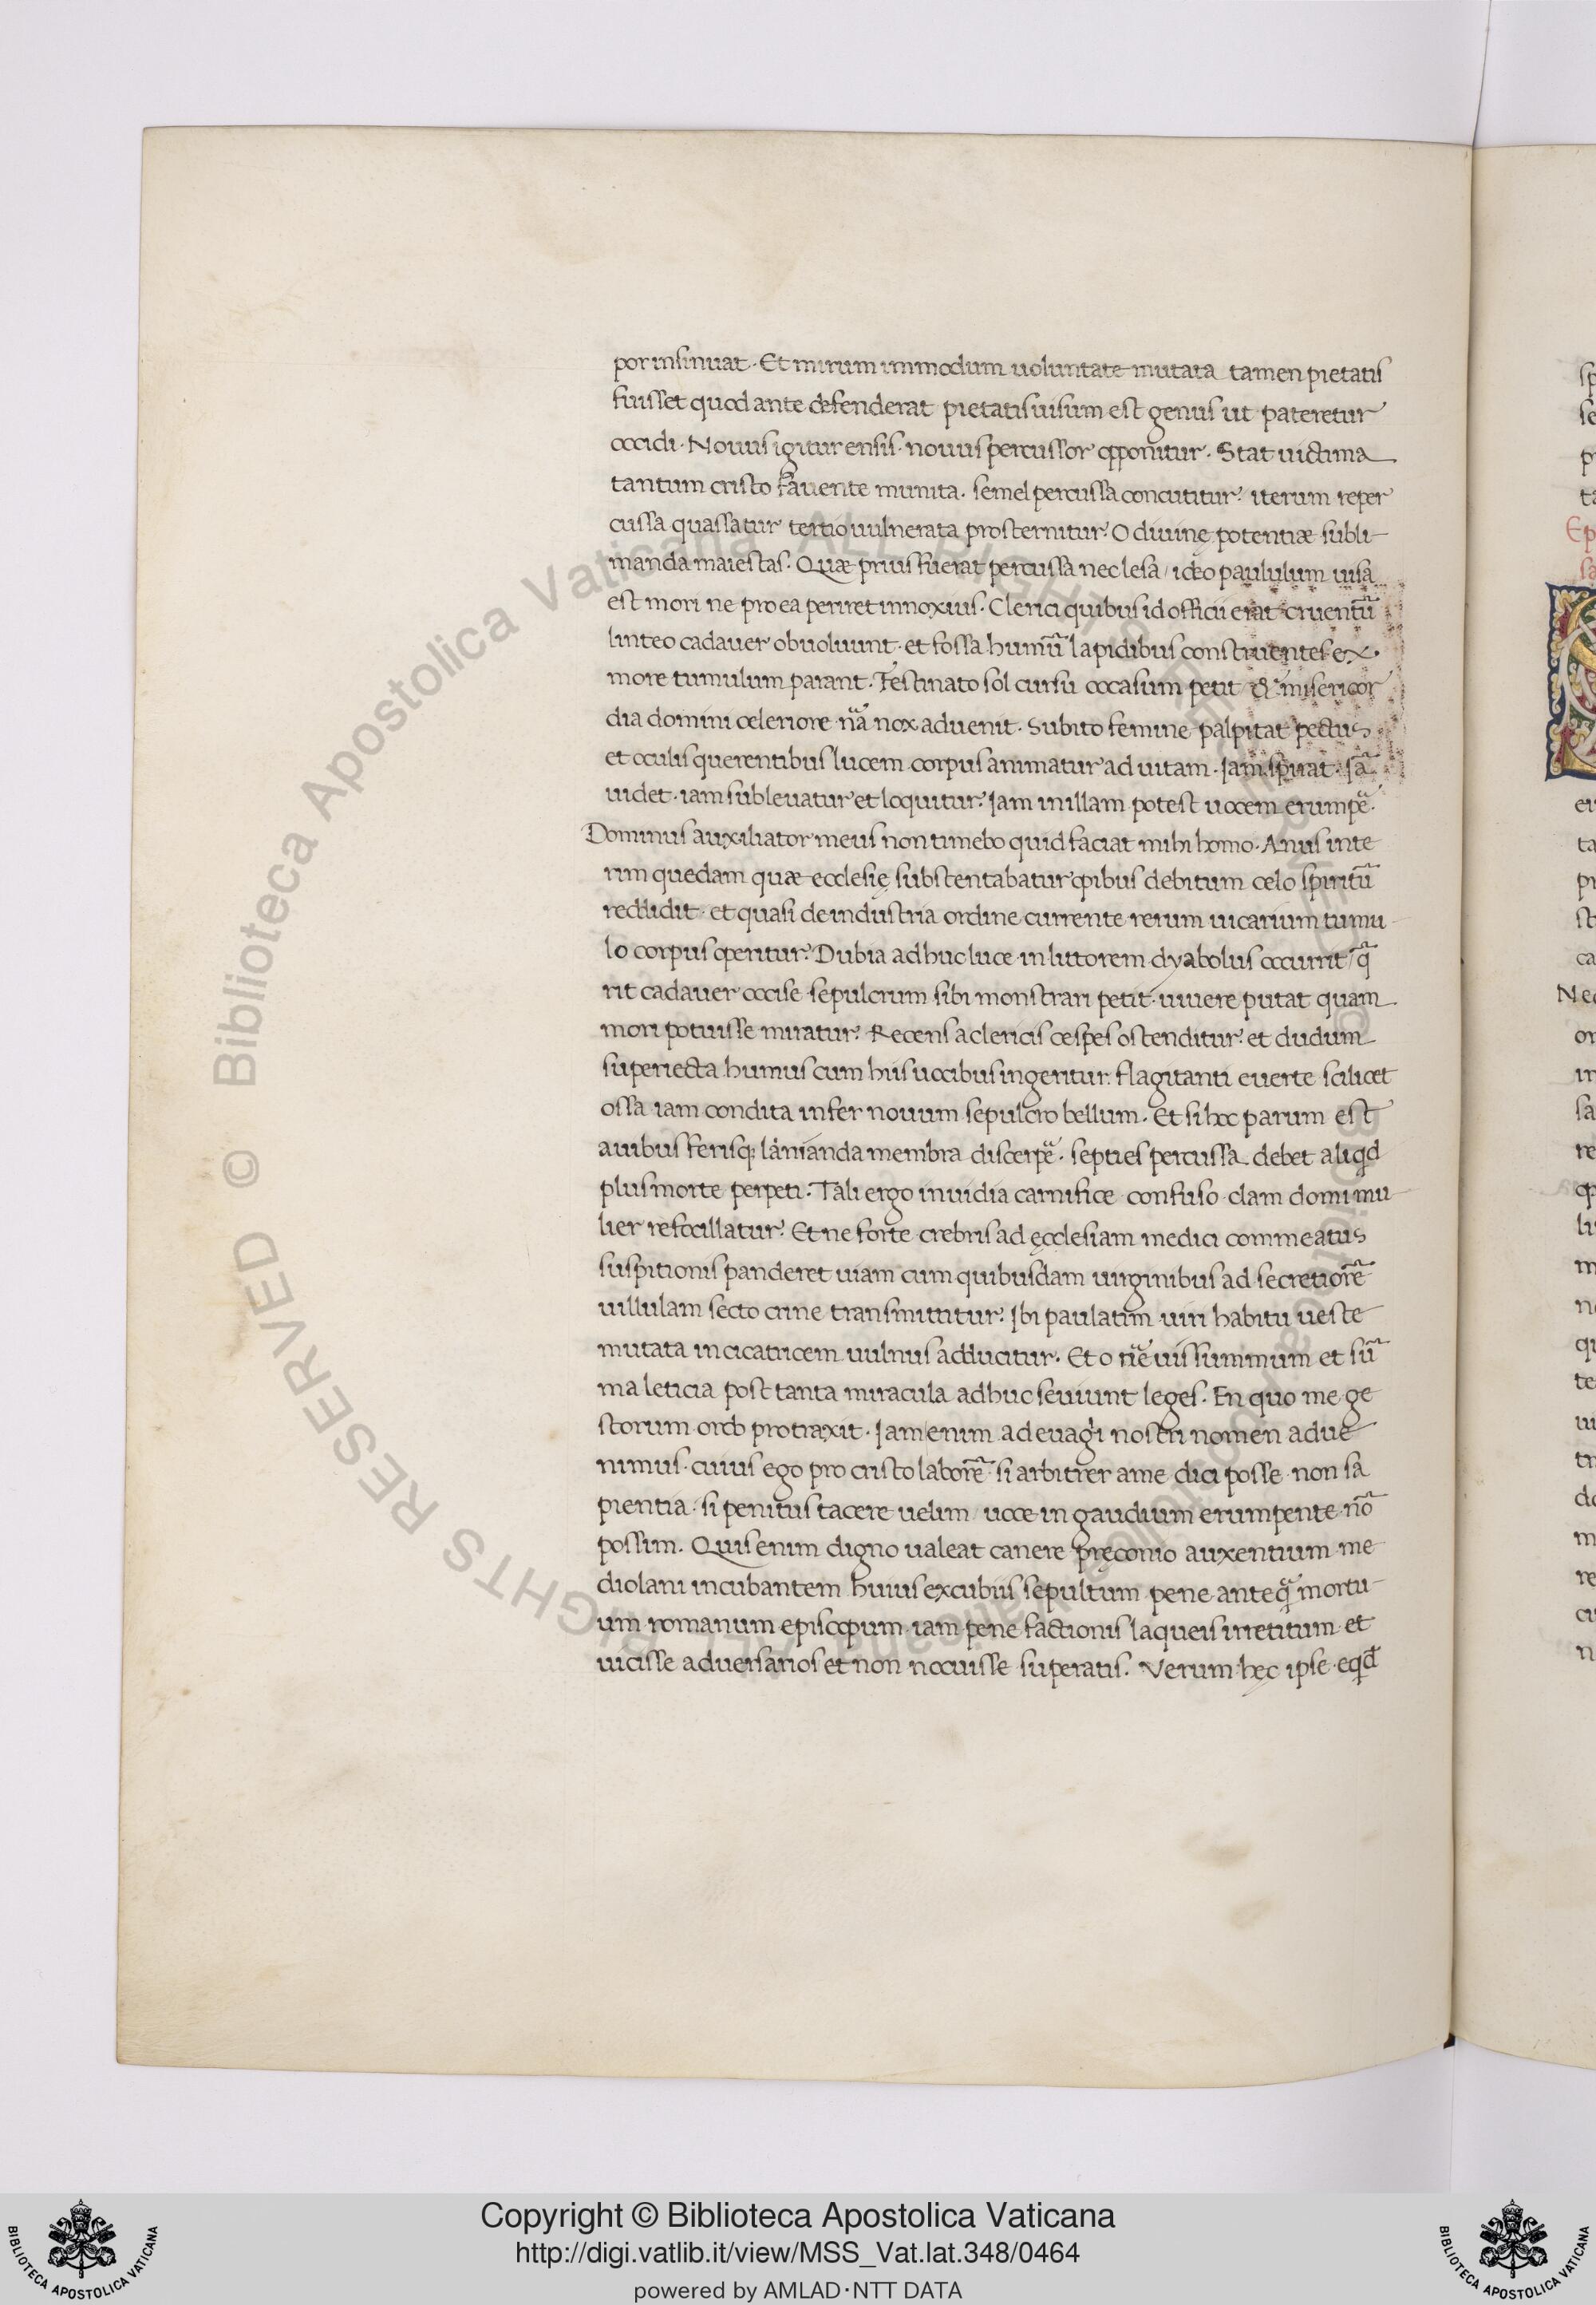 por insinuat. Et mirum immodum uoluntate mutata tamen pietatis
fuisset quod ante defenderat pietatis uisum est genus ut pateretur
occidi. Nouus igitur ensis. nouus percussor opponitur. Stat uictima
tantum cristo fauente munita. semel percussa concutitur. iterum reper
cussa quassatur tertio uulnerata prosternitur. O diuine potentiæ subli-
manda maiestas. Quæ prius fuerat percussa nec lesa / ideo paululum uisa
est mori ne pro ea periret innoxius. Clerici quibus id officii erat cruentū
linteo cadauer obuoluunt. et fossa humū lapidibus construentes ex
more tumulum parant. Festinato sol cursu occasum petit & misericor
dia domini celeriore nā nox aduenit. Subito femine palpitat pectus
et oculis querentibus lucem corpus animatur ad uitam. Iam spirat. Iā
uidet. iam subleuatur et loquitur. Iam in illam potest uocem erumpē.
Dominus auxiliator meus non timebo quid faciat mihi homo. Anus inte
rim quedam quæ ecclesię substentabatur opibus debitum celo spiritū
reddidit. et quasi de industria ordine currente rerum uicarium tumu
lo corpus operitur. Dubia adhuc luce in littorem dyabolus occurrit / q̄
rit cadauer occise sepulcrum sibi monstrari petit. uiuere putat quam
mori potuisse miratur. Recens a clericis cespes ostenditur. et dudum
superiecta humus cum his uocibus ingeritur. flagitanti euerte scilicet
ossa iam condita infer nouum sepulcro bellum. Et si hoc parum est
auibus ferisq; lanianda membra discerpē. septies percussa debet aliqd
plus morte perpeti. Tali ergo inuidia carnifice confuso clam domi mu
lier refocillatur. Et ne forte crebris ad ęcclesiam medici commeatus
suspitionis panderet uiam cum quibusdam uirginibus ad secretiorē
uillulam secto crine transmittitur. Ibi paulatim uiri habitu ueste
mutata in cicatricem uulnus adducitur. Et o nē uis summum et sū
ma leticia post tanta miracula adhuc seuiunt leges. En quo me ge
storum ordo protraxit. Iam enim ad euagri nostri nomen adue
nimus. cuius ego pro cristo laborē si arbitrer a me dici posse non sa
pientia. si penitus tacere uelim / uoce in gaudium erumpente nō
possim. Quis enim digno ualeat canere pręconio auxentium me
diolani incubantem huius excubiis sepultum pene anteq̄ mortu-
um romanum episcopum iam pene factionis laqueis irretitum et
uicisse aduersarios et non nocuisse superatis. Verum hęc ipse eqd
sp
se
p
ta
Ep
sa
ei
ta
pr
st
ca
Nec
or
in
sa
re
op
li
m
n
qu
te
ui
tr
do
m
re
cu
n
© Biblioteca Apostolica Vaticana ALL RIGHTS RESERVED
© Biblioteca Apostolica Vaticana ALL RIGHTS RESERVED
BIBLIOTECA APOSTOLICA VATICANA
Copyright © Biblioteca Apostolica Vaticana
http://digi.vatlib.it/view/MSS_Vat.lat.348/0464
powered by AMLAD·NTT DATA
BIBLIOTECA APOSTOLICA VATICANA